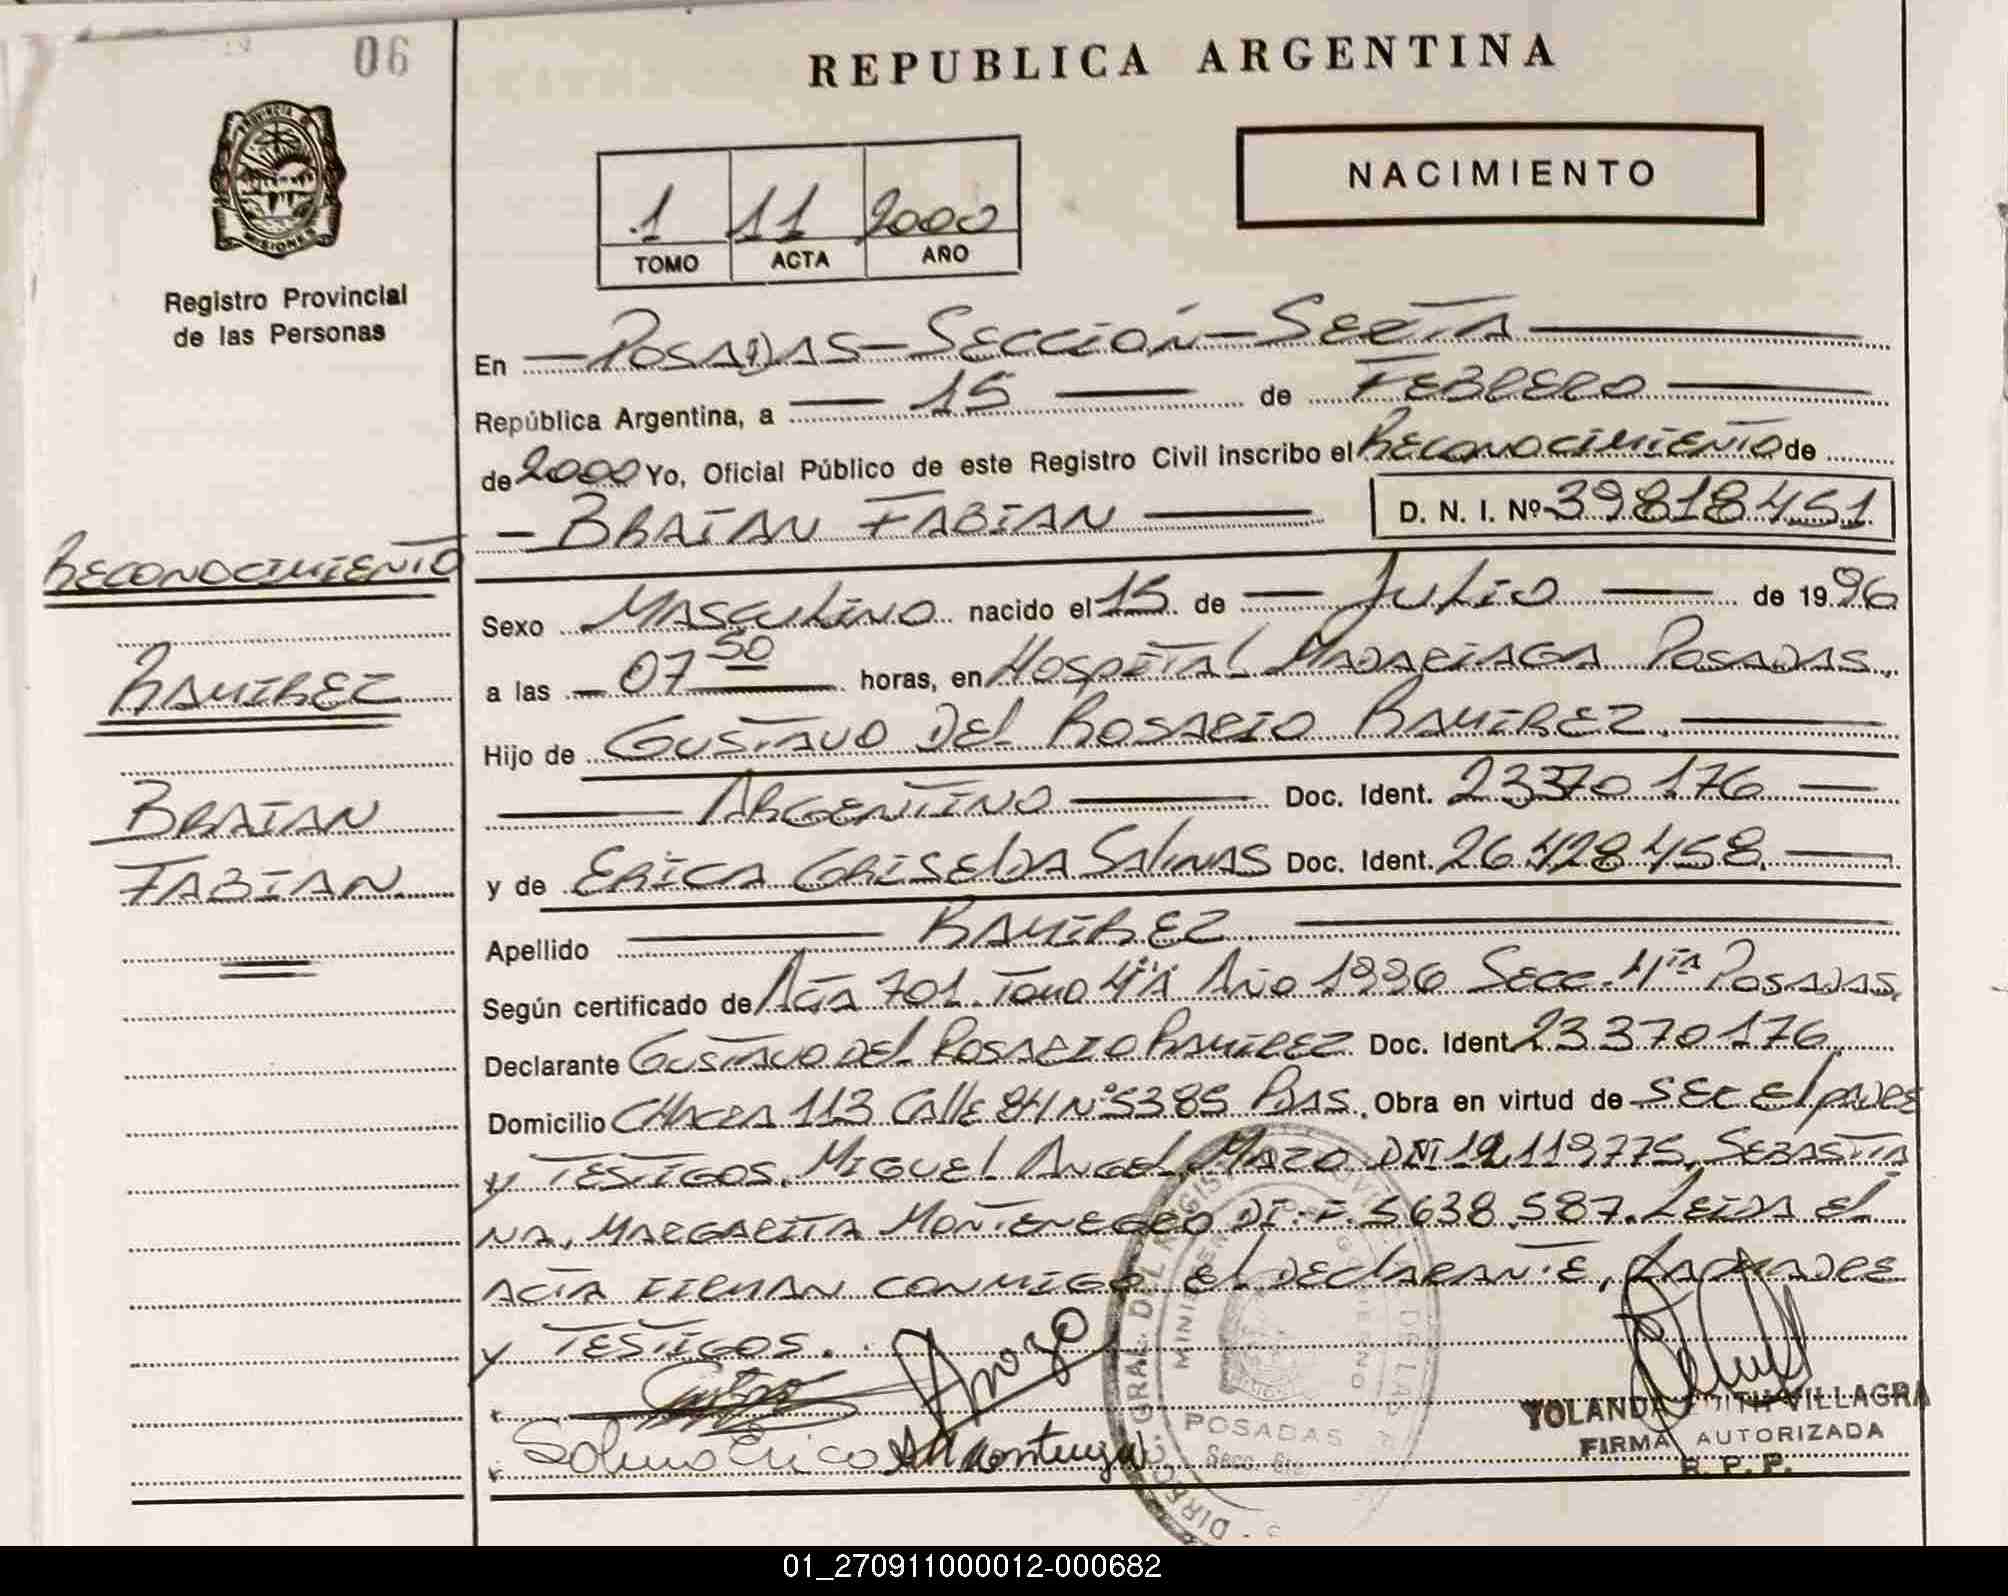 06
REPUBLICA ARGENTINA
PROVINCIA DE
MISIONES
Registro Provincial
de las Personas
1 11 2000
TOMO ACTA AÑO
NACIMIENTO
En — POSADAS - SECCIÓN - SEXTA —
República Argentina, a — 15 — de FEBRERO —
de 2000 Yo, Oficial Público de este Registro Civil inscribo el RECONOCIMIENTO de
— BRAIAN FABIAN — D. N. I. Nº 39818451
RECONOCIMIENTO
RAMIREZ
BRAIAN
FABIAN
Sexo MASCULINO nacido el 15 de — JULIO — de 1996
a las — 07 50 horas, en HOSPITAL MADARIAGA POSADAS
Hijo de GUSTAVO DEL ROSARIO RAMIREZ. —
— ARGENTINO — Doc. Ident. 23370176 —
y de ERICA GRISELDA SALINAS Doc. Ident. 26.428.458. —
Apellido — RAMIREZ —
Según certificado de ACTA 701. TOMO 4TA AÑO 1996 SECC. 4TA POSADAS.
Declarante GUSTAVO DEL ROSARIO RAMIREZ Doc. Ident. 23370176
Domicilio CHACRA 113 CALLE 84 Nº 5385 PDAS. Obra en virtud de SER EL PADRE
Y TESTIGOS. MIGUEL ANGEL MAZO DNI 12.119775, SEBASTIA
NA, MARGARITA MONTENEGRO DI.-F. 5638.587. LEIDA EL
ACTA FIRMAN CONMIGO EL DECLARANTE, LA MADRE
Y TESTIGOS.
DIREC. GRAL. DEL REGIST. PROVI. DE LAS
POSADAS
Secc.
YOLANDA EDITH VILLAGRA
FIRMA AUTORIZADA
R. P. P.
01_270911000012-000682